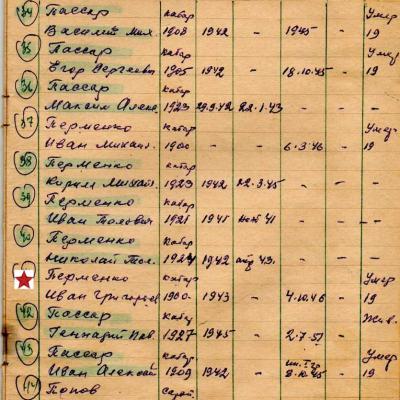 34 Пассар кабар Умер
Василий Мих. 1908 1942 - 1945 - 19
35 Пассар кабар Умер
Егор Сергеевич 1905 1942 - 18.10.45 - 19
36 Пассар кабар
Максим Алекс. 1923 29.9.42 22.1.43 - - -
37 Перменко кабар Умер
Иван Михаил. 1900 - - 6.3.46 - 19
38 Перменко кабар
Кирилл Михайл. 1923 1942 22.3.45 - - -
39 Перменко кабар
Иван 1921 1941 41 - - -
40 Перменко кабар
Николай 1924 1942 43. - - -
Перменко кабар Умер
Иван Григорьев 1900 1943 - 4.10.46 - 19
42 Пассар кабар Жив.
Геннадий Пав. 1927 1945 - 2.7.51 -
43 Пассар кабар Умер
Иван Алексей 1909 1942 - 3.10.45 - 19
44 Попов Сарат.